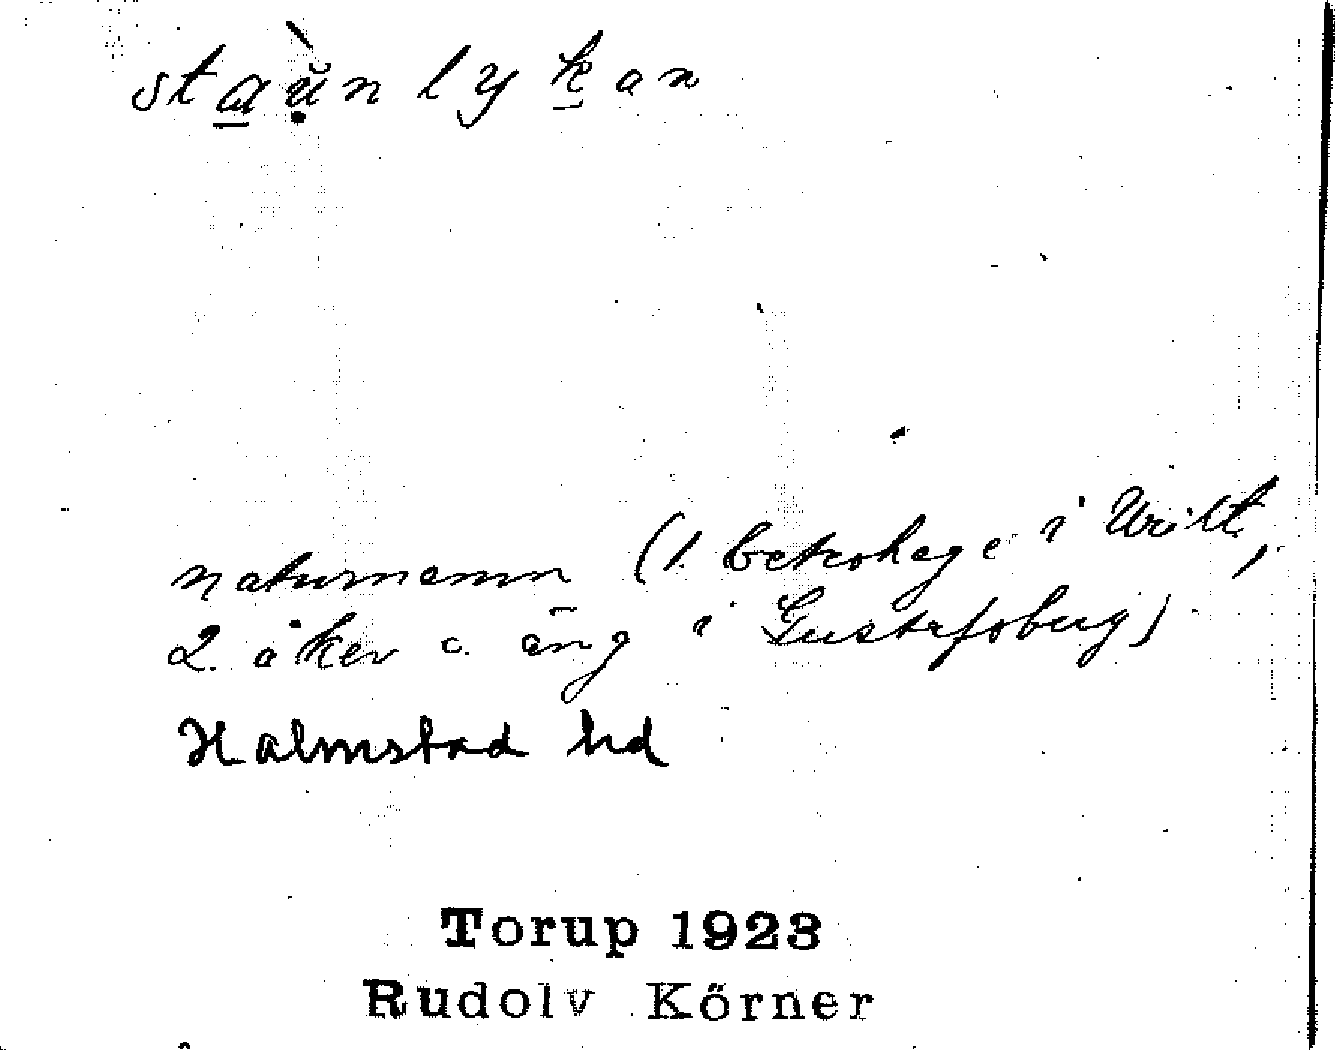 staùn lykan
naturnamn (1. beteshage i Vrilt,
2. åker o. äng i Gustafsberg)
Halmstad hd
Torup 1923
Rudolv Körner